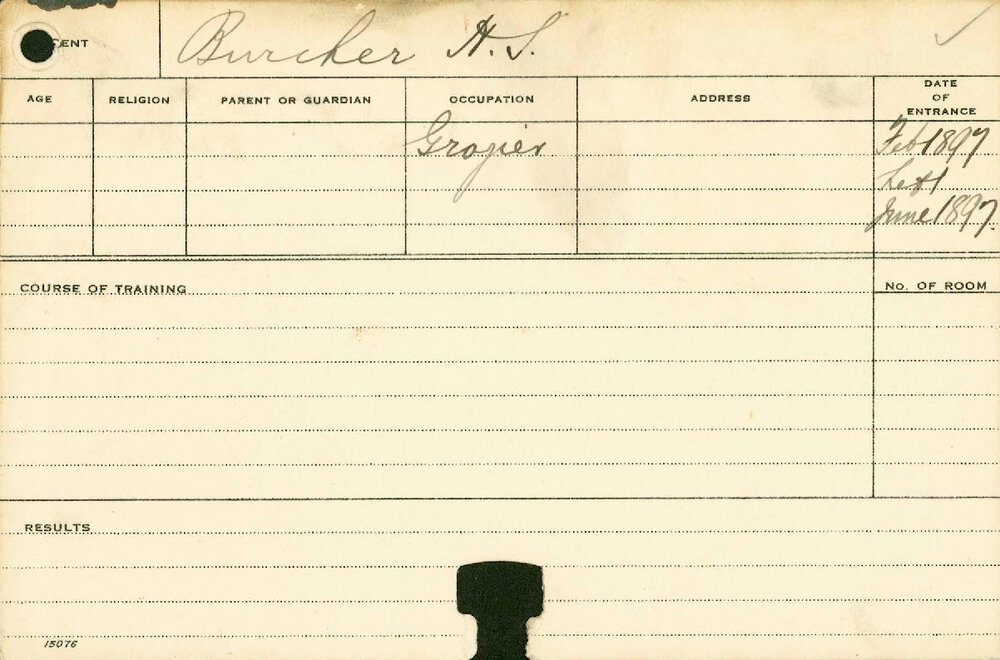 ENT Burcher H. S.
AGE RELIGION PARENT OR GUARDIAN OCCUPATION ADDRESS DATE OF ENTRANCE
Grozier Feb 1897
Left
June 1897.
COURSE OF TRAINING No. OF ROOM
RESULTS
15076